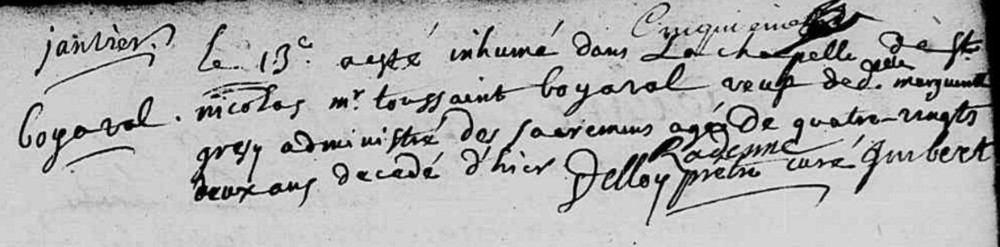 janvier.
Boyaval.
Le 13e. a esté inhumé dans La chapelle de St.
nicolas mr. toussaint boyaval veuf de d.elle marguerite
gresy administré des sacremens agé de quatre-vingts
deux ans decedé d'hier
Delloy prêtre curé guibert